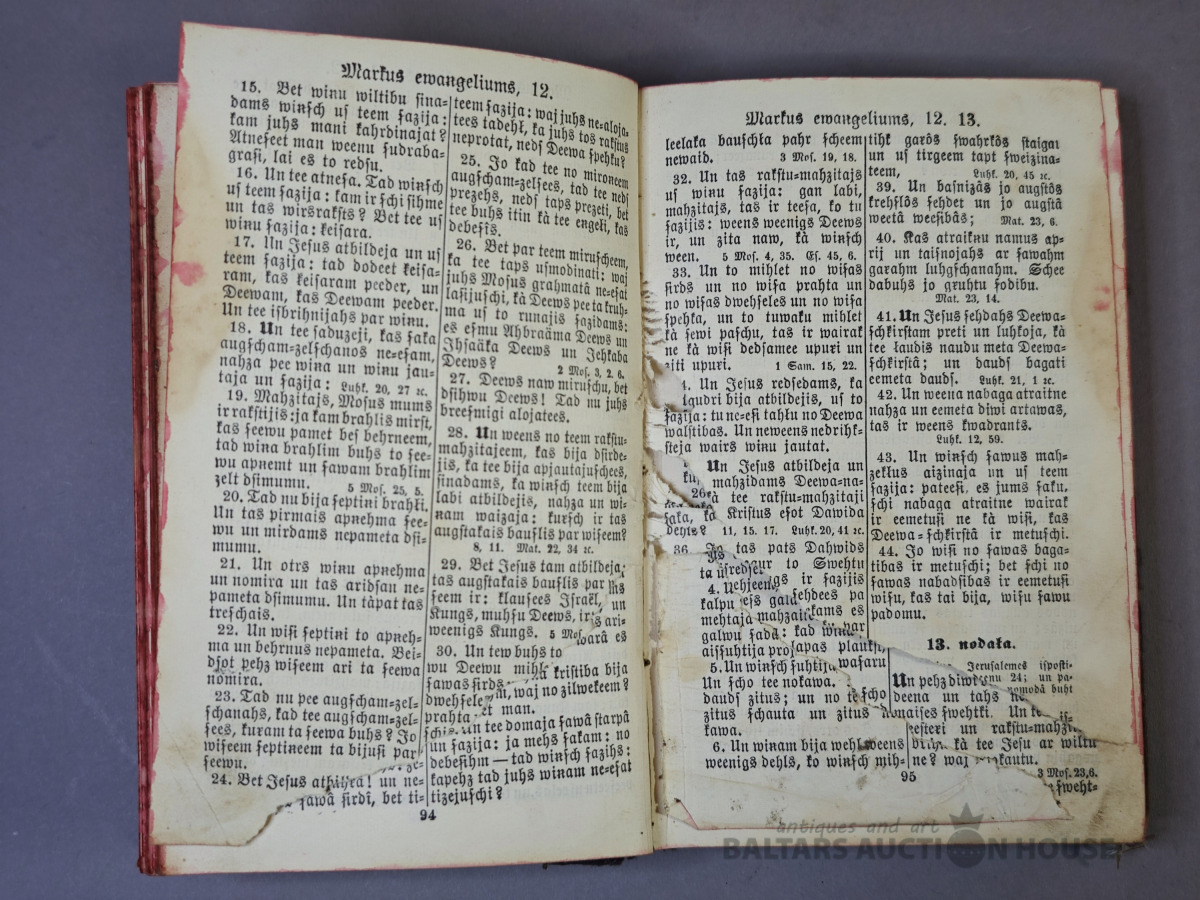 Markus ewangeliums, 12.
15. Bet wiņu wiltibu sina-
dams wiņsch us teem sazija:
kam juhs mani kahrdinajat?
Atneseet man weenu sudraba-
grasi, lai es to redsu.
16. Un tee atnesa. Tad wiņsch
us teem sazija: kam ir schi sihme
un tas wirsraksts? Bet tee us
wiņu sazija: keisara.
17. Un Jesus atbildeja un us
teem sazija: tad dodeet keisa-
ram, kas keisaram peeder, un
Deewam, kas Deewam peeder.
Un tee isbrihnijahs par wiņu.
18. Un tee saduzeji, kas saka
augscham-zelschanos ne-esam,
nahza pee wiņa un wiņu jau-
taja un sazija: Luhk. 20, 27 ꝛc.
19. Mahzitajs, Mosus mums
ir rakstijis: ja kam brahlis mirst,
kas seewu pamet bes behrneem,
tad wiņa brahlim buhs to see-
wu apņemt un sawam brahlim
zelt dsimumu. 5 Mos. 25, 5.
20. Tad nu bija septiņi brahļi.
Un tas pirmais apņehma see-
wu un mirdams nepameta dsi-
mumu.
21. Un otrs wiņu apņehma
un nomira un tas aridsan ne-
pameta dsimumu. Un tàpat tas
treschais.
22. Un wisi septiņi to apņeh-
ma un behrnus nepameta. Bei-
dsot pehz wiseem ari ta seewa
nomira.
23. Tad nu pee augscham-zel-
schanahs, kad tee augscham-zel-
sees, kuram ta seewa buhs? Jo
wiseem septiņeem ta bijusi par
seewu.
24. Bet Jesus atbildeja un ne-
sawâ sirdî, bet ti-
teem sazija: waj juhs ne-aloja-
tees tadehļ, ka juhs tos rakstus
neprotat, neds Deewa spehku?
25. Jo kad tee no miroņeem
augscham-zelsees, tad tee neds
prezehs, neds taps prezeti, bet
tee buhs itin kà tee engeļi, kas
debesîs.
26. Bet par teem miruscheem,
ka tee taps usmodinati: waj
juhs Mosus grahmatâ ne-esat
lasijuschi, kà Deews pee ta kruh-
ma us to runajis sazidams:
es esmu Ahbraäma Deews un
Ihsaäka Deews un Jehkaba
Deews? 2 Mos. 3, 2. 6.
27. Deews naw miruschu, bet
dsihwu Deews! Tad nu juhs
breesmigi alojatees.
28. Un weens no teem rakstu-
mahzitajeem, kas bija dsirde-
jis, ka tee bija apjautajuschees,
sinadams, ka wiņsch teem bija
labi atbildejis, nahza un wi-
ņam waizaja: kursch ir tas
augstakais bauslis par wiseem?
8, 11. Mat. 22, 34 ꝛc.
29. Bet Jesus tam atbildeja:
tas augstakais bauslis par
seem ir: klausees Israël,
Kungs, muhsu Deews, ir
weenigs Kungs. 5 Mos
30. Un tew buhs to
wu Deewu mihļ
sawas sirds
dwehsele
prahta
kristiba bija
waj no zilwekeem?
man.
un tee domaja sawâ starpâ
un sazija: ja mehs sakam: no
debesihm — tad wiņsch sazihs:
kapehz tad juhs wiņam ne-esat
tizejuschi?
94
Markus ewangeliums, 12. 13.
leelaka bauschļa pahr scheem
newaid. 3 Mos. 19, 18.
32. Un tas rakstu-mahzitajs
us wiņu sazija: gan labi,
mahzitajs, tas ir teesa, ko tu
sazijis: weens weenigs Deews
ir, un zita naw, kà wiņsch
ween. 5 Mos. 4, 35. Es. 45, 6.
33. Un to mihlet no wisas
sirds un no wisa prahta un
no wisas dwehseles un no wisa
spehka, un to tuwaku mihlet
kà sewi paschu, tas ir wairak
ne kà wisi dedsamee upuri un
ziti upuri. 1 Sam. 15, 22.
4. Un Jesus redsedams, ka
gudri bija atbildejis, us to
sazija: tu ne-esi tahļu no Deewa
walstibas. Un neweens nedrihk-
steja wairs wiņu jautat.
Un Jesus atbildeja un
mahzidams Deewa-na-
kà tee rakstu-mahzitaji
saka, ka Kristus esot Dawida
dehls? 11, 15. 17. Luhk. 20, 41 ꝛc.
36. Jo tas pats Dahwids
zur to Swehtu
ir sazijis
4.
kalpu
mehtaja
galwu
aissuhtija prosapas
5. Un wiņsch suhtija
Un scho tee nokawa.
dauds zitus; un no
zitus schauta un zitus
kawa.
6. Un wiņam bija wehl weens
weenigs dehls, ko wiņsch mih-
tihk garôs swahrkôs staigat
un us tirgeem tapt sweizina-
teem, Luhk. 20, 45 ꝛc.
39. Un basnizâs jo augstôs
krehslôs sehdet un jo augstâ
weetâ weesibâs; Mat. 23, 6.
40. Kas atraikņu namus ap-
rij un taisnojahs ar sawahm
garahm luhgschanahm. Schee
dabuhs jo gruhtu sodibu.
Mat. 23, 14.
41. Un Jesus sehdahs Deewa-
schkirstam preti un luhkoja, kà
tee ļaudis naudu meta Deewa-
schkirstâ; un daudſ bagati
eemeta daudſ. Luhk. 21, 1 ꝛc.
42. Un weena nabaga atraitne
nahza un eemeta diwi artawas,
tas ir weens kwadrants.
Luhk. 12, 59.
43. Un wiņsch sawus mah-
zeklus aizinaja un us teem
sazija: pateesi, es jums saku,
schi nabaga atraitne wairak
ir eemetusi ne kà wisi, kas
Deewa-schkirstâ ir metuschi.
44. Jo wisi no sawas baga-
tibas ir metuschi; bet schi no
sawas nabadsibas ir eemetusi
wisu, kas tai bija, wisu sawu
padomu.
13. nodaļa.
Jerusalemes isposti-
24; un pa-
buht
Un pehz
deena un tahs
swehtki. Un
un rakstu-mahzi
kà tee Jesu ar wiltu
ne? waj
95
3 Mos. 23, 6.
sweht-
antiques and art
BALTARS AUCTION HOUSE